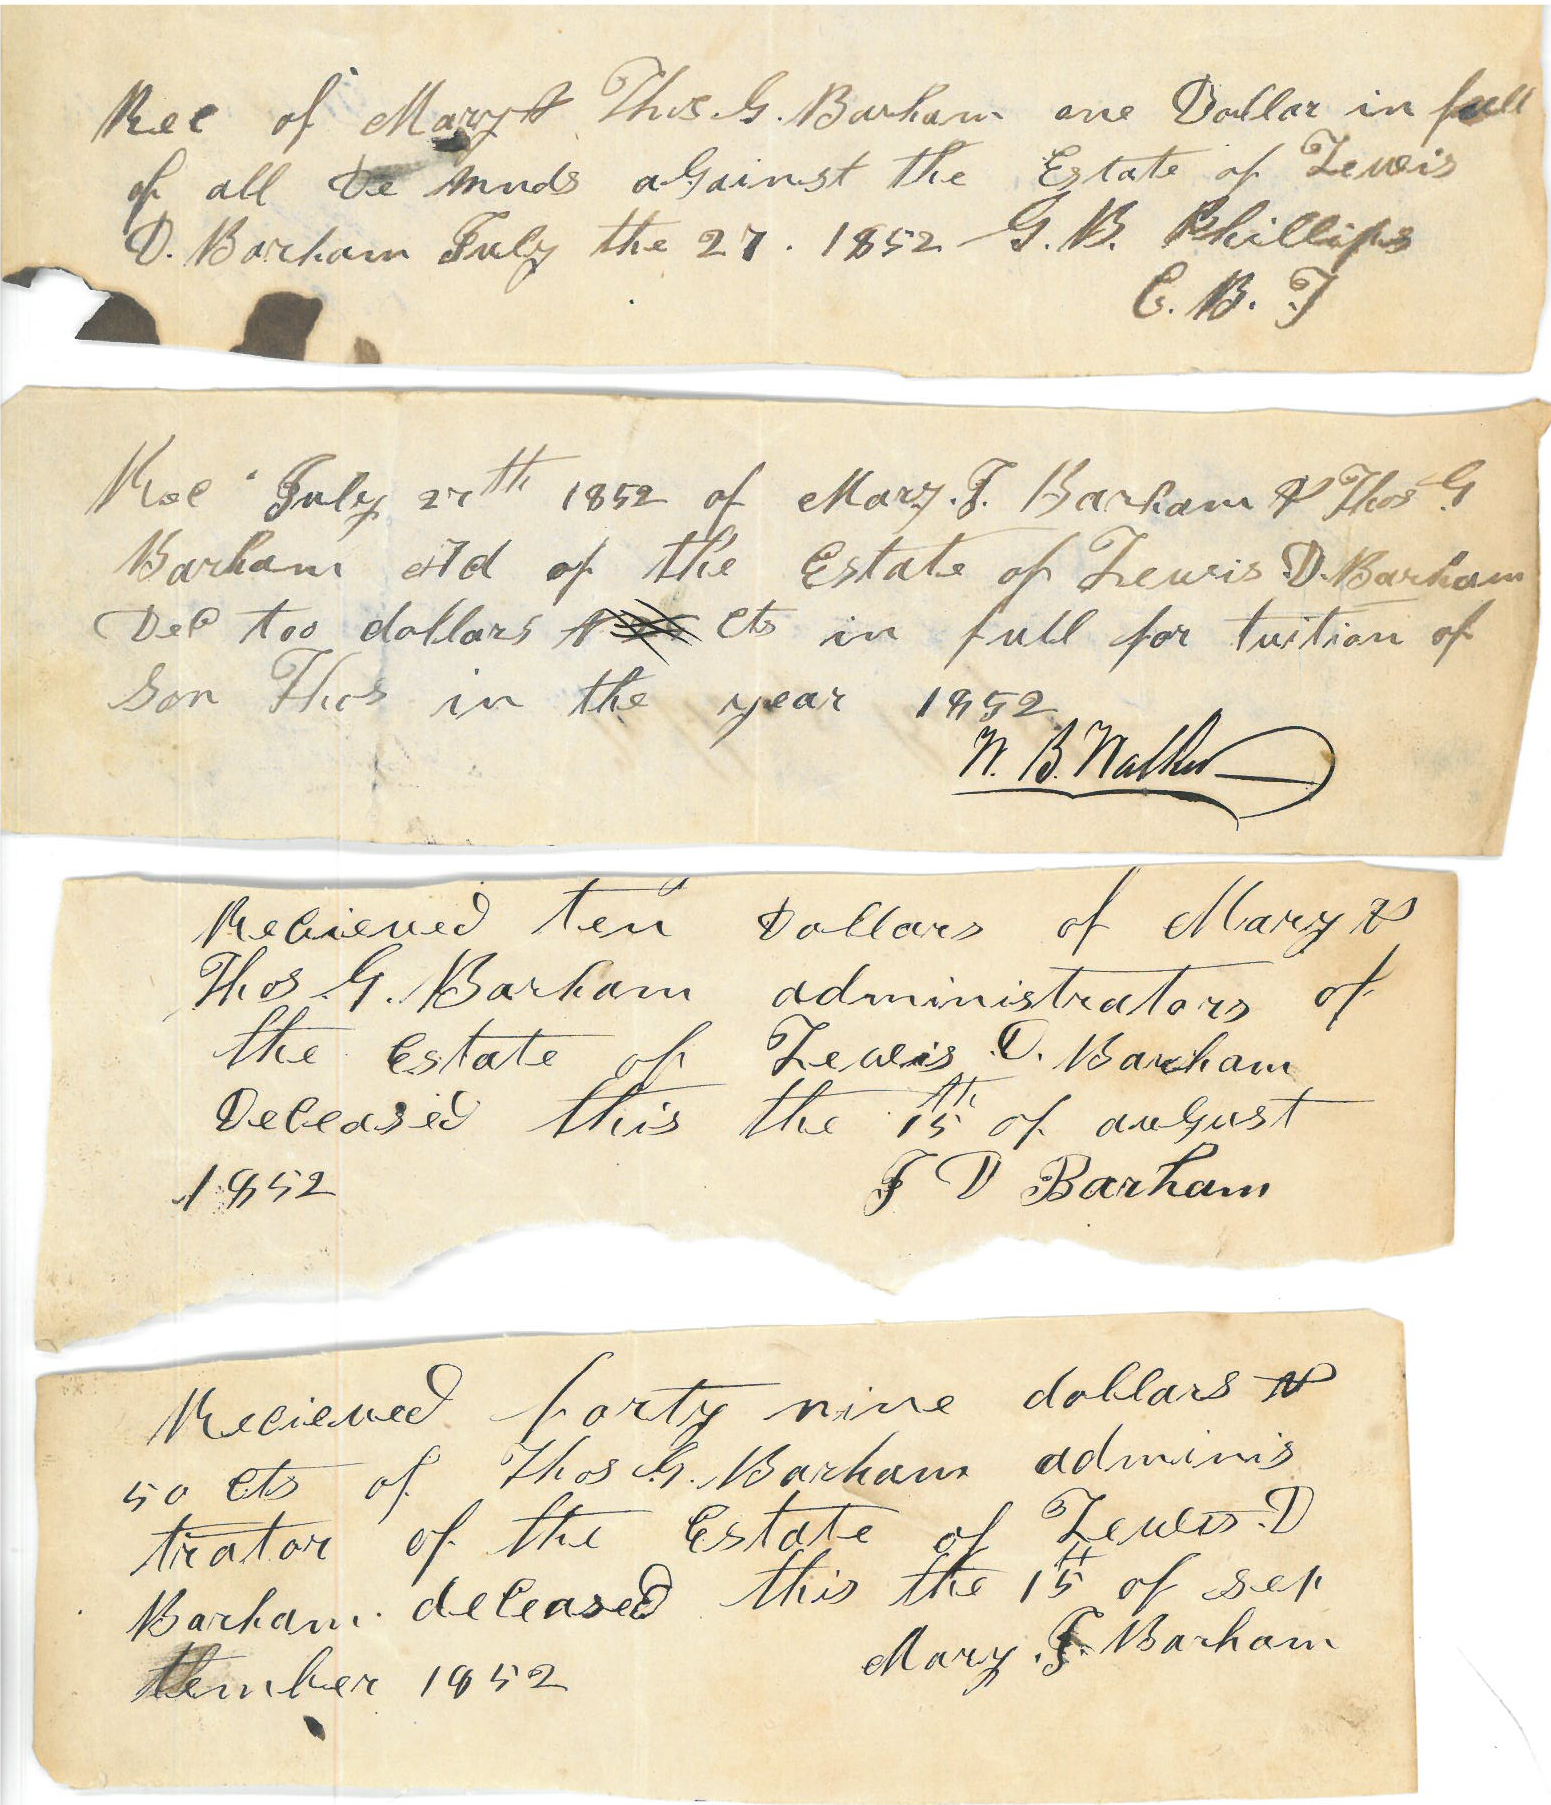 Rec of Mary & Thos G. Barham one Dollar in full
of all De mnds against the Estate of Lewis
D. Barham July the 27. 1852 G. B. Phillips
C. B. T
Rec July 27th 1852 of Mary. F. Barham & Thos G
Barham Ad of the Estate of Lewis D. Barham
Dec too dollars cts in full for tuition of
Son Thos in the year 1852
W. B. Walker
Recieved ten Dollars of Mary &
Thos G. Barham administrators of
the Estate of Lewis D. Barham
Deceased this the 15th of august
1852 F D Barham
Recieved forty nine dollars &
50 cts of Thos G. Barham adminis
trator of the Estate of Lewis. D
Barham. deceased this the 15th of sep
tember 1852 Mary. F. Barham